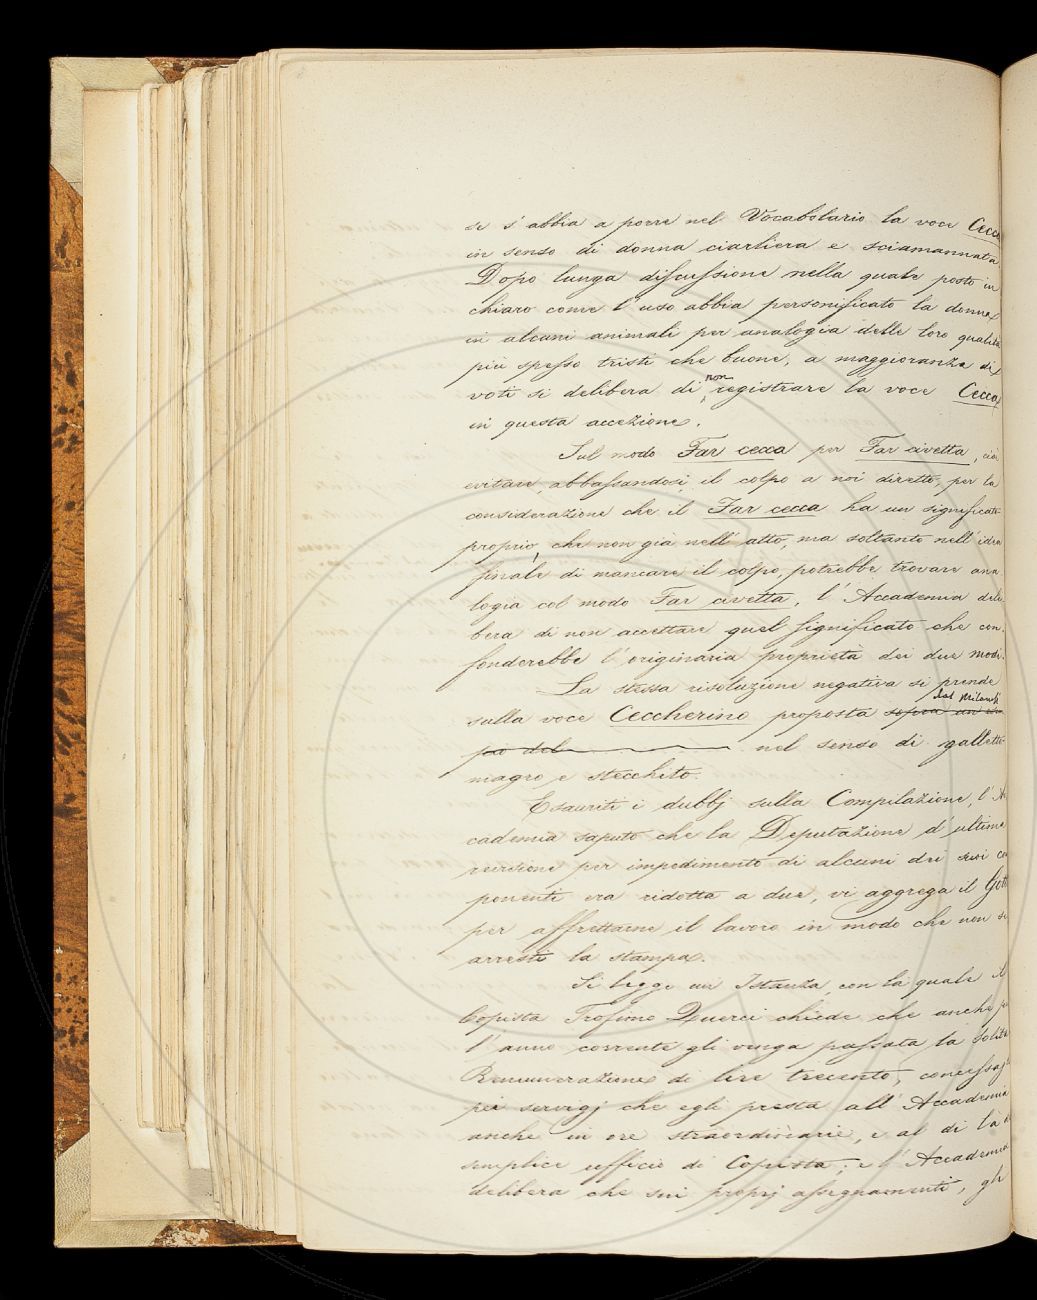 se s'abbia a porre nel Vocabolario la voce Cecca
in senso di donna ciarliera e sciamannata.
Dopo lunga discussione nella quale posto in
chiaro come l'uso abbia personificato la donna
in alcuni animali per analogia delle loro qualità
più spesso tristi che buone, a maggioranza di
voti si delibera di non registrare la voce Cecca
in questa accezione.
Sul modo Far cecca per Far civetta, cioè
evitare, abbassandosi, il colpo a noi diretto, per la
considerazione che il Far cecca ha un significato
proprio, che non già nell'atto, ma soltanto nell'idea
finale di mancare il colpo, potrebbe trovare ana
logia col modo Far civetta, l'Accademia deli
bera di non accettare quel significato che con
fonderebbe l'originaria proprietà dei due modi.
La stessa risoluzione negativa si prende
dal Milanesi
sulla voce Ceccherino proposta sopra un esem
pio del nel senso di galletto
magro e stecchito.
Esauriti i dubbj sulla Compilazione, l'Ac
cademia saputo che la Deputazione d'ultima
revisione per impedimento di alcuni dei suoi co
ponenti era ridotta a due, vi aggrega il Gotti
per affrettarne il lavoro in modo che non si
arresti la stampa.
Si legge un' Istanza, con la quale il
Copista Trofimo Querci chiede che anche per
l'anno corrente gli venga passata la solita
Remunerazione di lire trecento, concessa
pei servigj che egli presta all'Accademia
anche in ore straordinarie, e al di là
semplice ufficio di Copista; e l'Accademia
delibera che sui proprj assegnamenti, gli